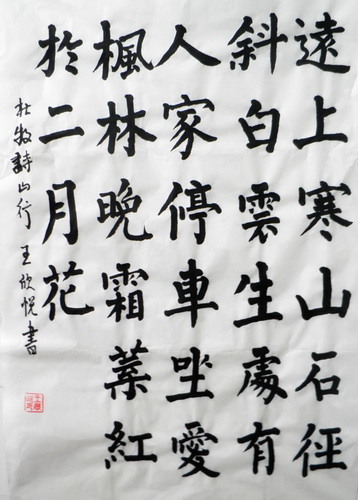 遠上寒山石徑
斜白雲生處有
人家停車坐愛
楓林晚霜葉紅
於二月花
杜牧詩山行 王欣悅書